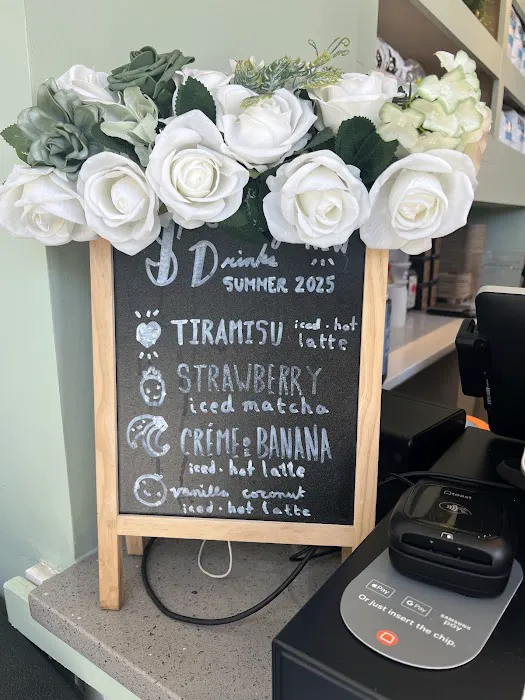 Drinks
SUMMER 2025
TIRAMISU iced · hot
latte
STRAWBERRY
iced matcha
CRÉME BANANA
iced · hot latte
vanilla coconut
iced · hot latte
toast
Pay
G Pay
SAMSUNG
pay
Or just insert the chip.